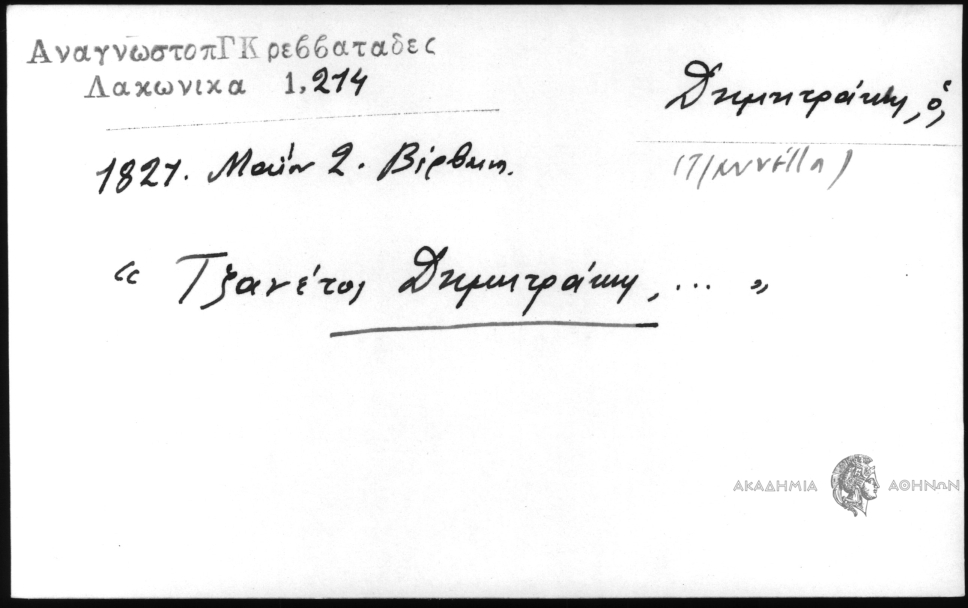 ΑναγνωστοπΓΚρεββαταδες
Λακωνικα 1,214
Δημητράκης, ὁ,
1821. Μαΐου 2. Βέρβενα.
« Τζανέτος Δημητράκης, ... »
ΑΚΑΔΗΜΙΑ ΑΘΗΝΩΝ